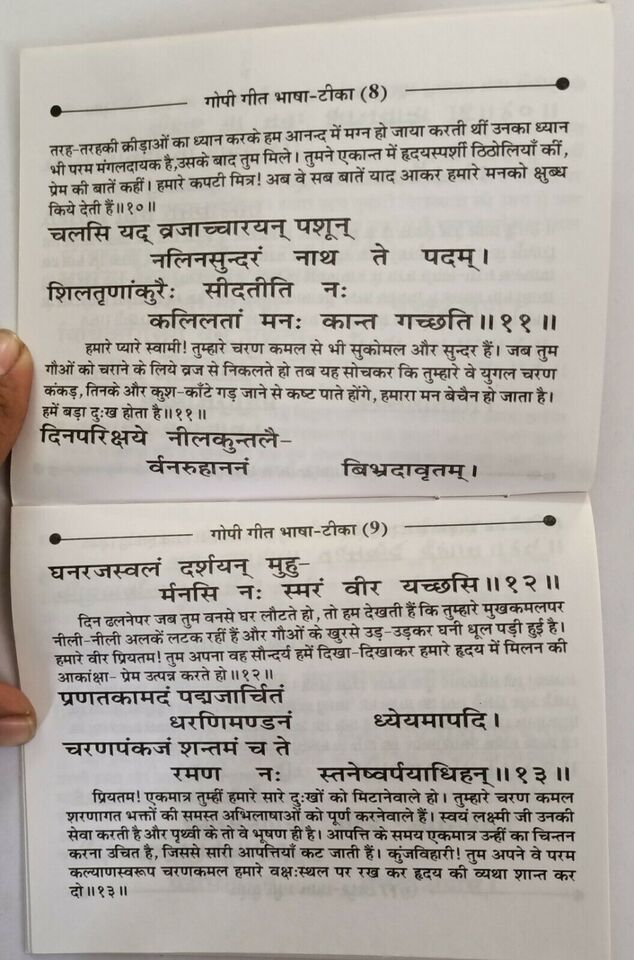 गोपी गीत भाषा-टीका (8)
तरह-तरहकी क्रीड़ाओं का ध्यान करके हम आनन्द में मग्न हो जाया करती थीं उनका ध्यान
भी परम मंगलदायक है,उसके बाद तुम मिले। तुमने एकान्त में हृदयस्पर्शी ठिठोलियाँ कीं,
प्रेम की बातें कहीं। हमारे कपटी मित्र! अब वे सब बातें याद आकर हमारे मनको क्षुब्ध
किये देती हैं॥१०॥
चलसि यद् व्रजाच्चारयन् पशून्
नलिनसुन्दरं नाथ ते पदम्।
शिलतृणांकुरैः सीदतीति नः
कलिलतां मनः कान्त गच्छति॥११॥
हमारे प्यारे स्वामी! तुम्हारे चरण कमल से भी सुकोमल और सुन्दर हैं। जब तुम
गौओं को चराने के लिये व्रज से निकलते हो तब यह सोचकर कि तुम्हारे वे युगल चरण
कंकड़, तिनके और कुश-काँटे गड़ जाने से कष्ट पाते होंगे, हमारा मन बेचैन हो जाता है।
हमें बड़ा दुःख होता है॥११॥
दिनपरिक्षये नीलकुन्तलै-
र्वनरुहाननं बिभ्रदावृतम्।
गोपी गीत भाषा-टीका (9)
घनरजस्वलं दर्शयन् मुहु-
र्मनसि नः स्मरं वीर यच्छसि॥१२॥
दिन ढलनेपर जब तुम वनसे घर लौटते हो, तो हम देखती हैं कि तुम्हारे मुखकमलपर
नीली-नीली अलकें लटक रहीं हैं और गौओं के खुरसे उड़-उड़कर घनी धूल पड़ी हुई है।
हमारे वीर प्रियतम! तुम अपना वह सौन्दर्य हमें दिखा-दिखाकर हमारे हृदय में मिलन की
आकांक्षा- प्रेम उत्पन्न करते हो॥१२॥
प्रणतकामदं पद्मजार्चितं
धरणिमण्डनं ध्येयमापदि।
चरणपंकजं शन्तमं च ते
रमण नः स्तनेष्वर्पयाधिहन्॥१३॥
प्रियतम! एकमात्र तुम्हीं हमारे सारे दुःखों को मिटानेवाले हो। तुम्हारे चरण कमल
शरणागत भक्तों की समस्त अभिलाषाओं को पूर्ण करनेवाले हैं। स्वयं लक्ष्मी जी उनकी
सेवा करती है और पृथ्वी के तो वे भूषण ही है। आपत्ति के समय एकमात्र उन्हीं का चिन्तन
करना उचित है, जिससे सारी आपत्तियाँ कट जाती हैं। कुंजविहारी! तुम अपने वे परम
कल्याणस्वरूप चरणकमल हमारे वक्षःस्थल पर रख कर हृदय की व्यथा शान्त कर
दो॥१३॥